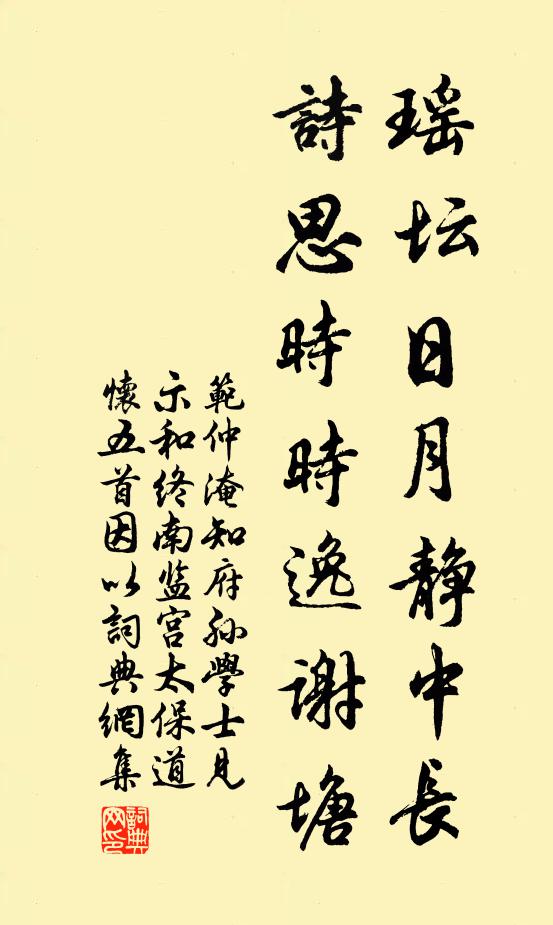 瑶坛日月静中長
詩思時時逸谢塘
範仲淹知府孙學士見
示和终南监宫太保道
懷五首因以詞典網集
詞典
网印